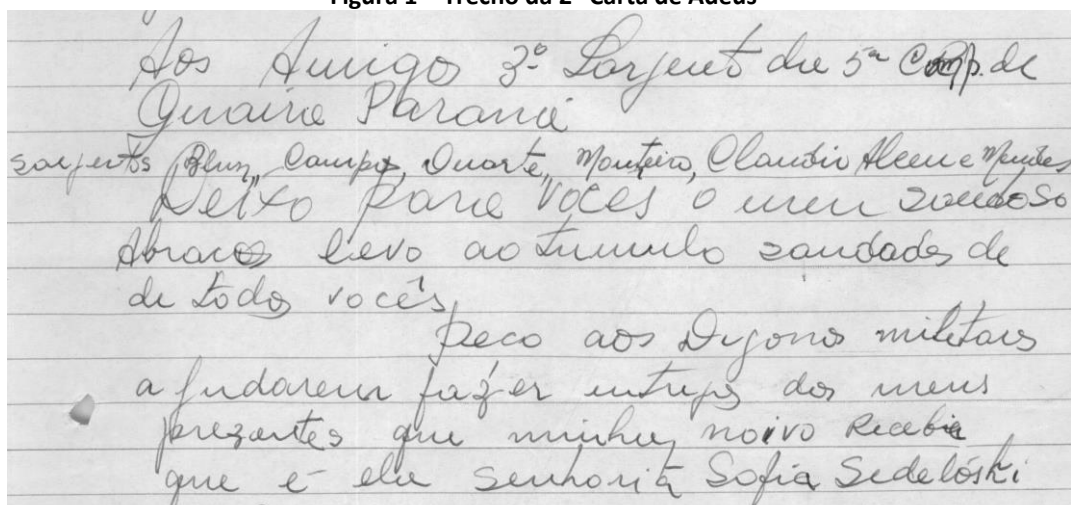 Figura 1 – Trecho da 2ª Carta de Adeus
Aos Amigo 3º Sargent da 5ª Comp. de
Guaira Paraná
sargentos Blun, Campos, Duarte, Monteiro, Claudio Alceu e Mendes
Deixo para vocês o meu saudoso
Abraços levo ao tumulo saudades de
de todos vocês
peco aos Digonos militares
a judarem fazer entregs dos meus
prezentes que minha, noivo Recebia
que é ela senhorita Sofia Sedelóski